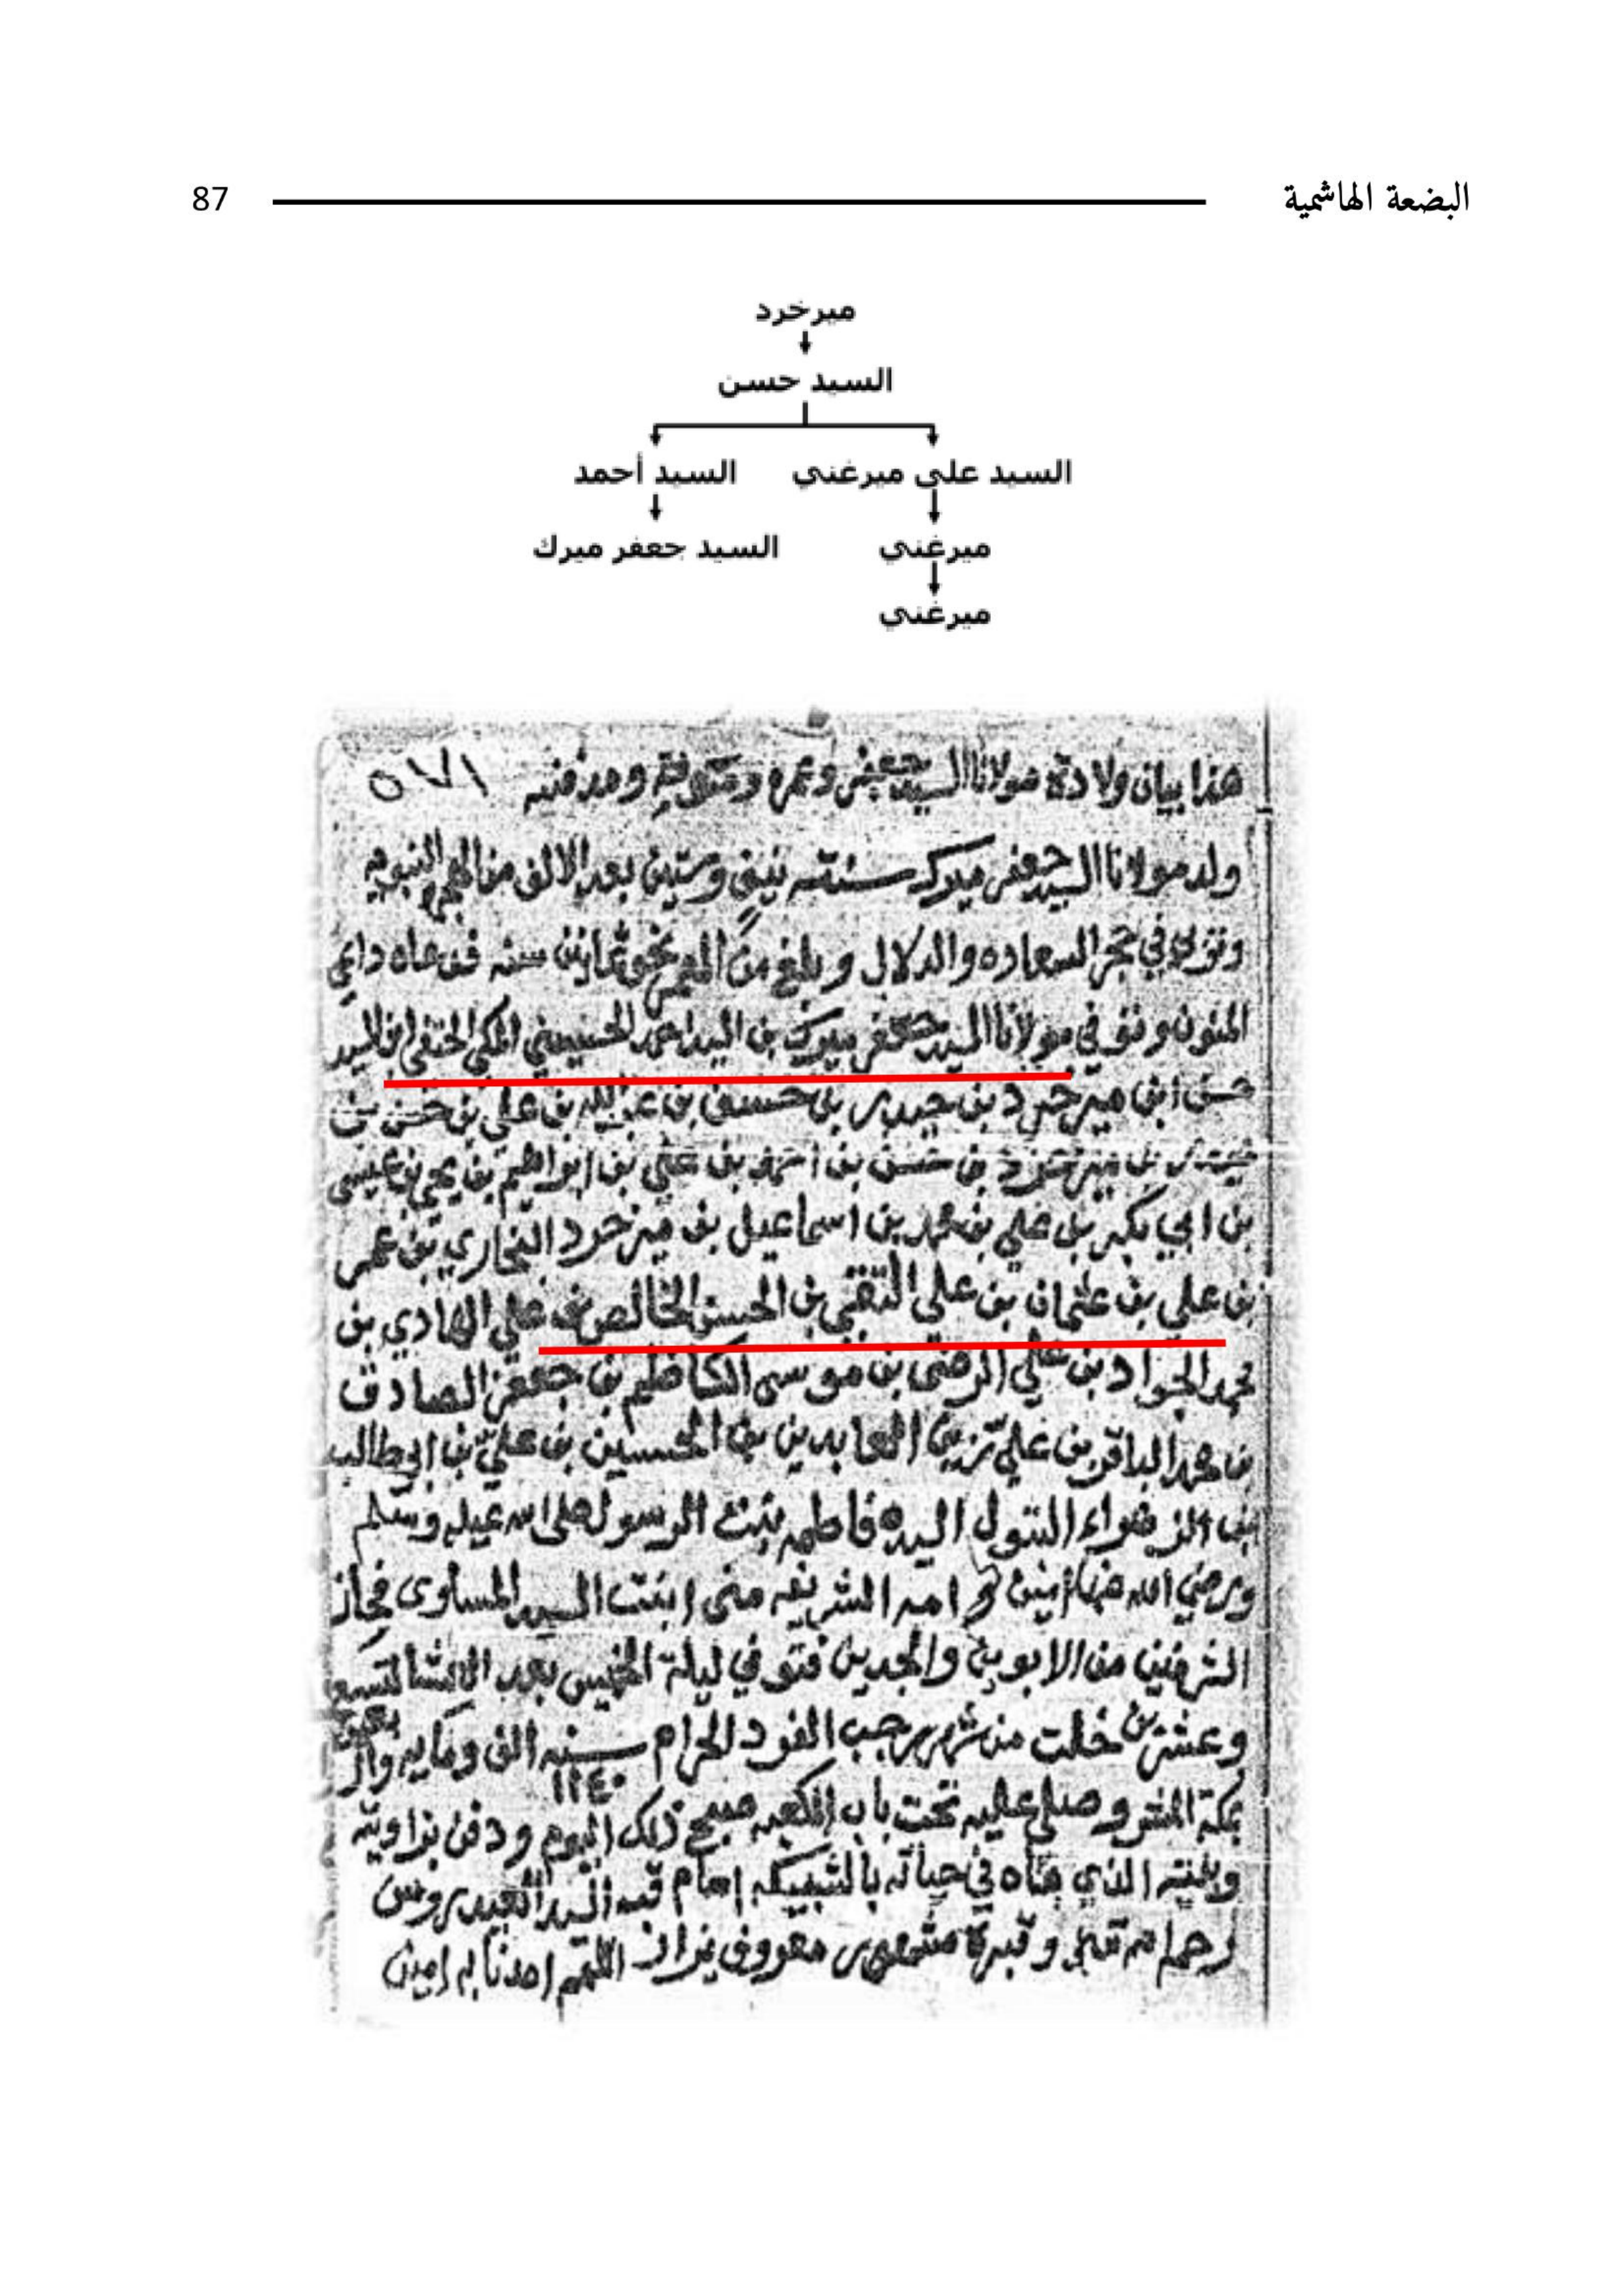 البضعة الهاشمية 87
ميرخرد
السيد حسن
السيد علي ميرغني السيد أحمد
ميرغني السيد جعفر ميرك
ميرغني
هذا بيان ولادة مولانا السيد جعفر وعمره ومدفنه
ولد مولانا السيد جعفر ميرك سنة وستين بعد الالف من الهجرة النبويه
في حجر السعاده والدلال وبلغ من العمر نحو ثمانين سنه داعي
المنون وتوفي مولانا السيد جعفر ميرك بن السيد احمد الحسيني المكي الحنفي ابن السيد
حسن ابن مير خرد بن حيدر بن حسن بن عبدالله بن علي بن حسن بن
بن مير خرد بن حسن بن احمد بن علي بن ابراهيم بن يحيى بن عيسى
بن ابي بكر بن علي بن محمد بن اسماعيل بن مير خرد البخاري بن عمر
بن علي بن عثمان بن علي التقي بن الحسن الخالص بن علي الهادي بن
محمد الجواد بن علي الرضى بن موسى الكاظم بن جعفر الصادق
بن محمد الباقر بن علي زين العابدين بن الحسين بن علي بن ابي طالب
البتول السيده فاطمه بنت الرسول صلى الله عليه وسلم
ورضي الله عنها امين وامه الشريفه منى ابنت السيد المساوى فحاز
الشرفين من الابوين والجدين فتوفي ليلة الخميس بعد
وعشرين خلت من شهر رجب الفرد الحرام سنه الف ومايه
١١٤٠
بمكة وصلي عليه تحت باب الكعبه صبح ذلك اليوم ودفن بزاويته
الذي بناه في حياته بالشبيكه امام قبه السيد العيدروس
وقبره معروف يزار اللهم امدنا به امين